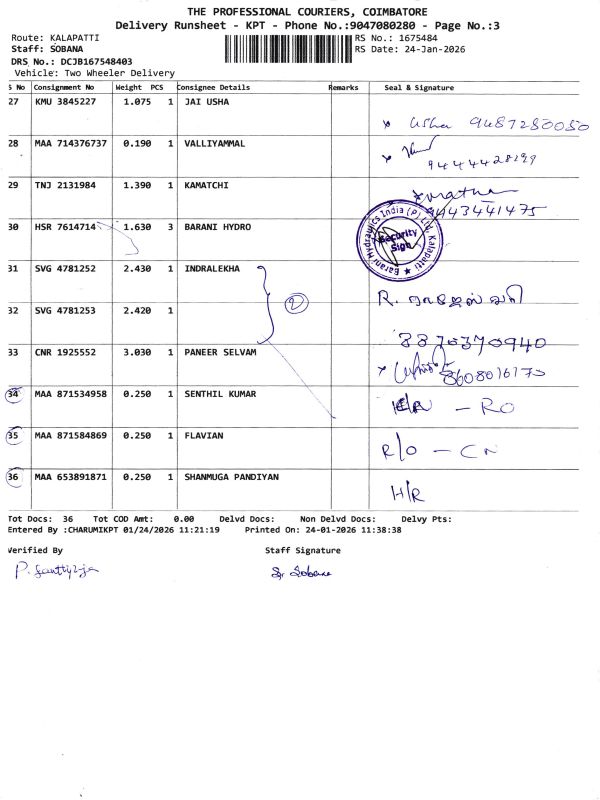 THE PROFESSIONAL COURIERS, COIMBATORE
Delivery Runsheet - KPT - Phone No.:9047080280 - Page No.:3
Route: KALAPATTI RS No.: 1675484
Staff: SOBANA RS Date: 24-Jan-2026
DRS No.: DCJB167548403
Vehicle: Two Wheeler Delivery
S No Consignment No Weight PCS Consignee Details Remarks Seal & Signature
27 KMU 3845227 1.075 1 JAI USHA
Usha 9487280050
28 MAA 714376737 0.190 1 VALLIYAMMAL
9444428199
29 TNJ 2131984 1.390 1 KAMATCHI
9443441475
30 HSR 7614714 1.630 3 BARANI HYDRO
Barani Hydraulics India (P) Ltd, Kalapatti
Security Sign
31 SVG 4781252 2.430 1 INDRALEKHA
2
R.
32 SVG 4781253 2.420 1
8870370940
33 CNR 1925552 3.030 1 PANEER SELVAM
8608016170
34 MAA 871534958 0.250 1 SENTHIL KUMAR
- RO
35 MAA 871584869 0.250 1 FLAVIAN
R/O - CN
36 MAA 653891871 0.250 1 SHANMUGA PANDIYAN
H/R
Tot Docs: 36 Tot COD Amt: 0.00 Delvd Docs: Non Delvd Docs: Delvy Pts:
Entered By :CHARUMIKPT 01/24/2026 11:21:19 Printed On: 24-01-2026 11:38:38
Verified By Staff Signature
Sobana